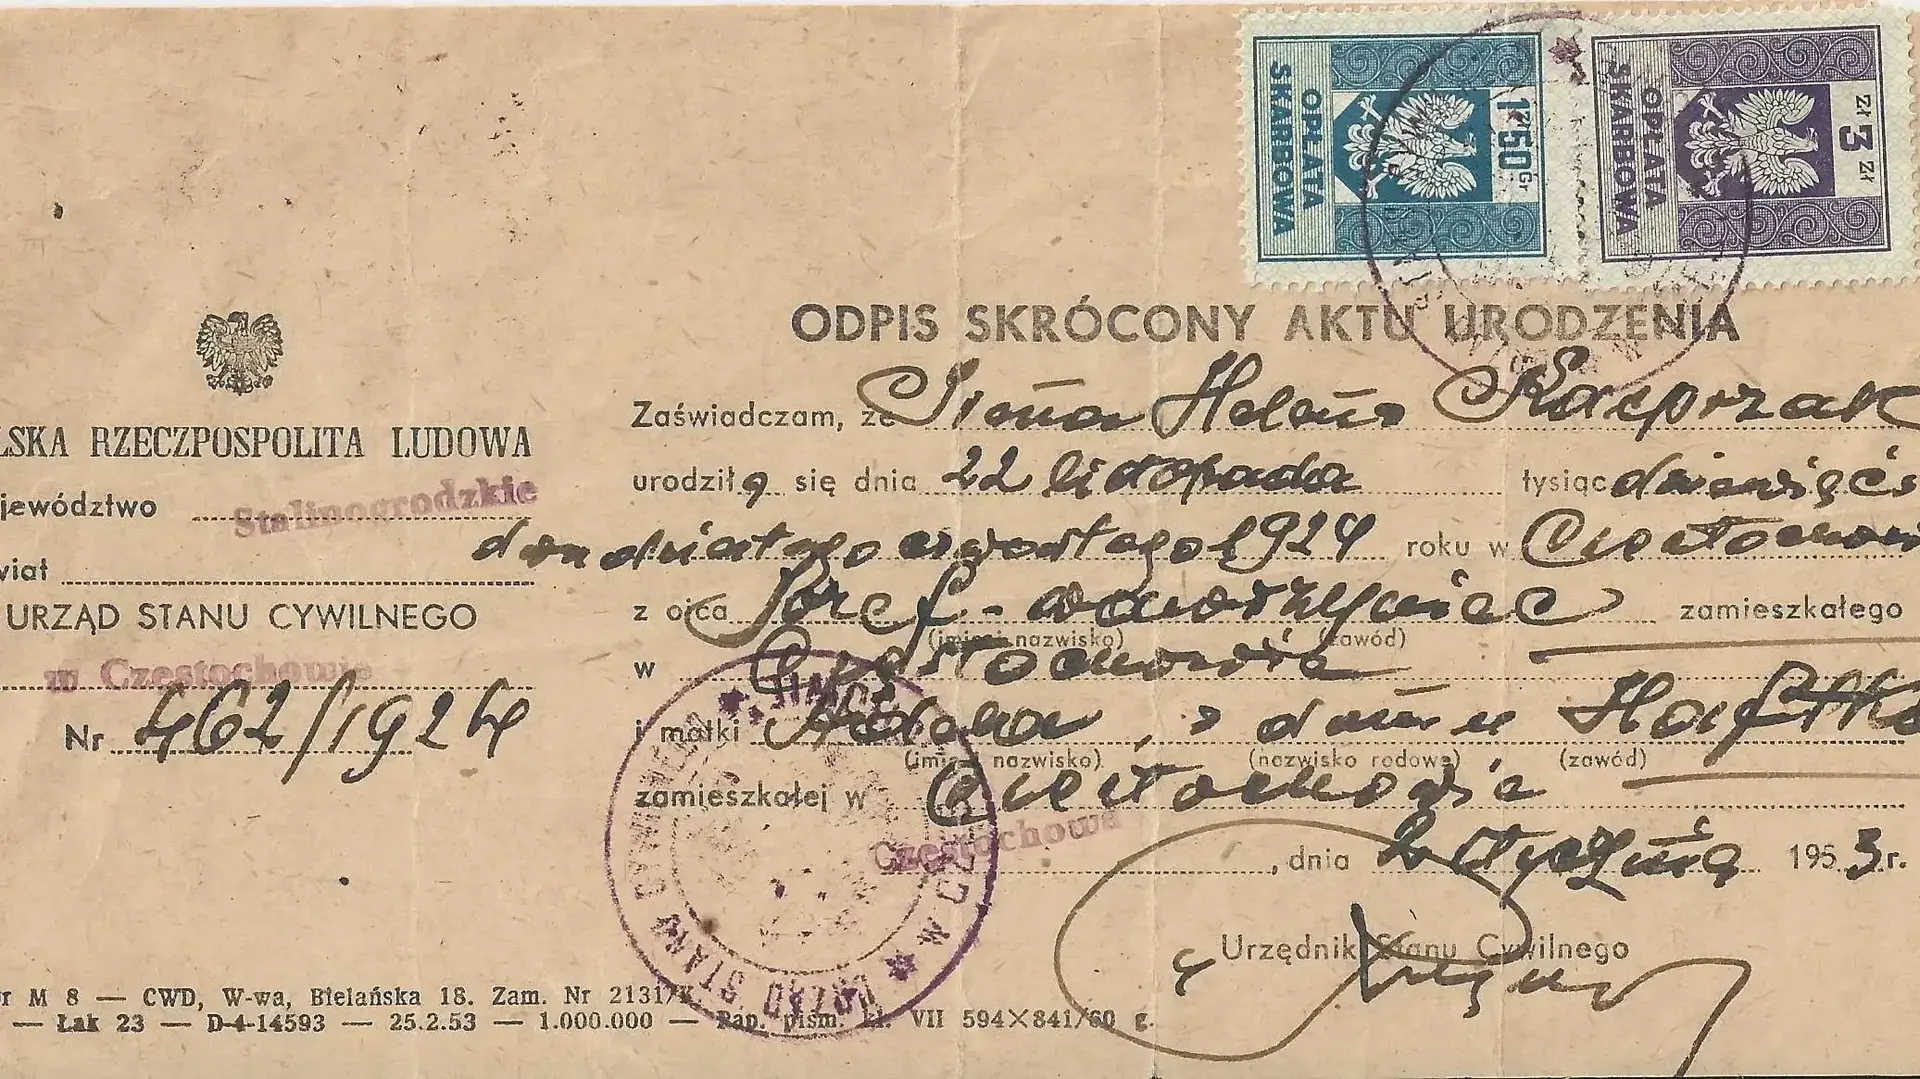 OPŁATA SKARBOWA 1 ZŁ 50 Gr
OPŁATA SKARBOWA ZŁ 3 ZŁ
ODPIS SKRÓCONY AKTU URODZENIA
LSKA RZECZPOSPOLITA LUDOWA
jewództwo Stalinogrodzkie
wiat
URZĄD STANU CYWILNEGO
w Częstochowie
Nr 462/1924
Zaświadczam, że Irena Helena Kacprzak
urodziła się dnia 22 listopada tysiąc dziewięćs
dwudziestego czwartego 1924 roku w Częstochowi
z ojca Józef - Wawrzyniec zamieszkałego
(imię i nazwisko) (zawód)
w Częstochowie
i matki , z domu
(imię nazwisko) (nazwisko rodowe) (zawód)
zamieszkałej w Częstochowie
Częstochowa, dnia 2 stycznia 1953 r.
Urzędnik Stanu Cywilnego
URZĄD STANU CYWILNEGO W
r M 8 — CWD, W-wa, Bielańska 18. Zam. Nr 2131/K
— Łak 23 — D-4-14593 — 25.2.53 — 1.000.000 — Pap. piśm. kl. VII 594×841/60 g.